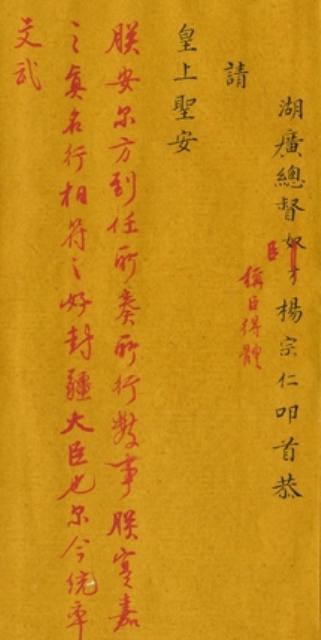 湖廣總督奴才楊宗仁叩首恭
臣
稱臣得體
請
皇上聖安
朕安尔方到任所奏所行數事朕實嘉
之真名行相符之好封疆大臣也尔今統率
文武